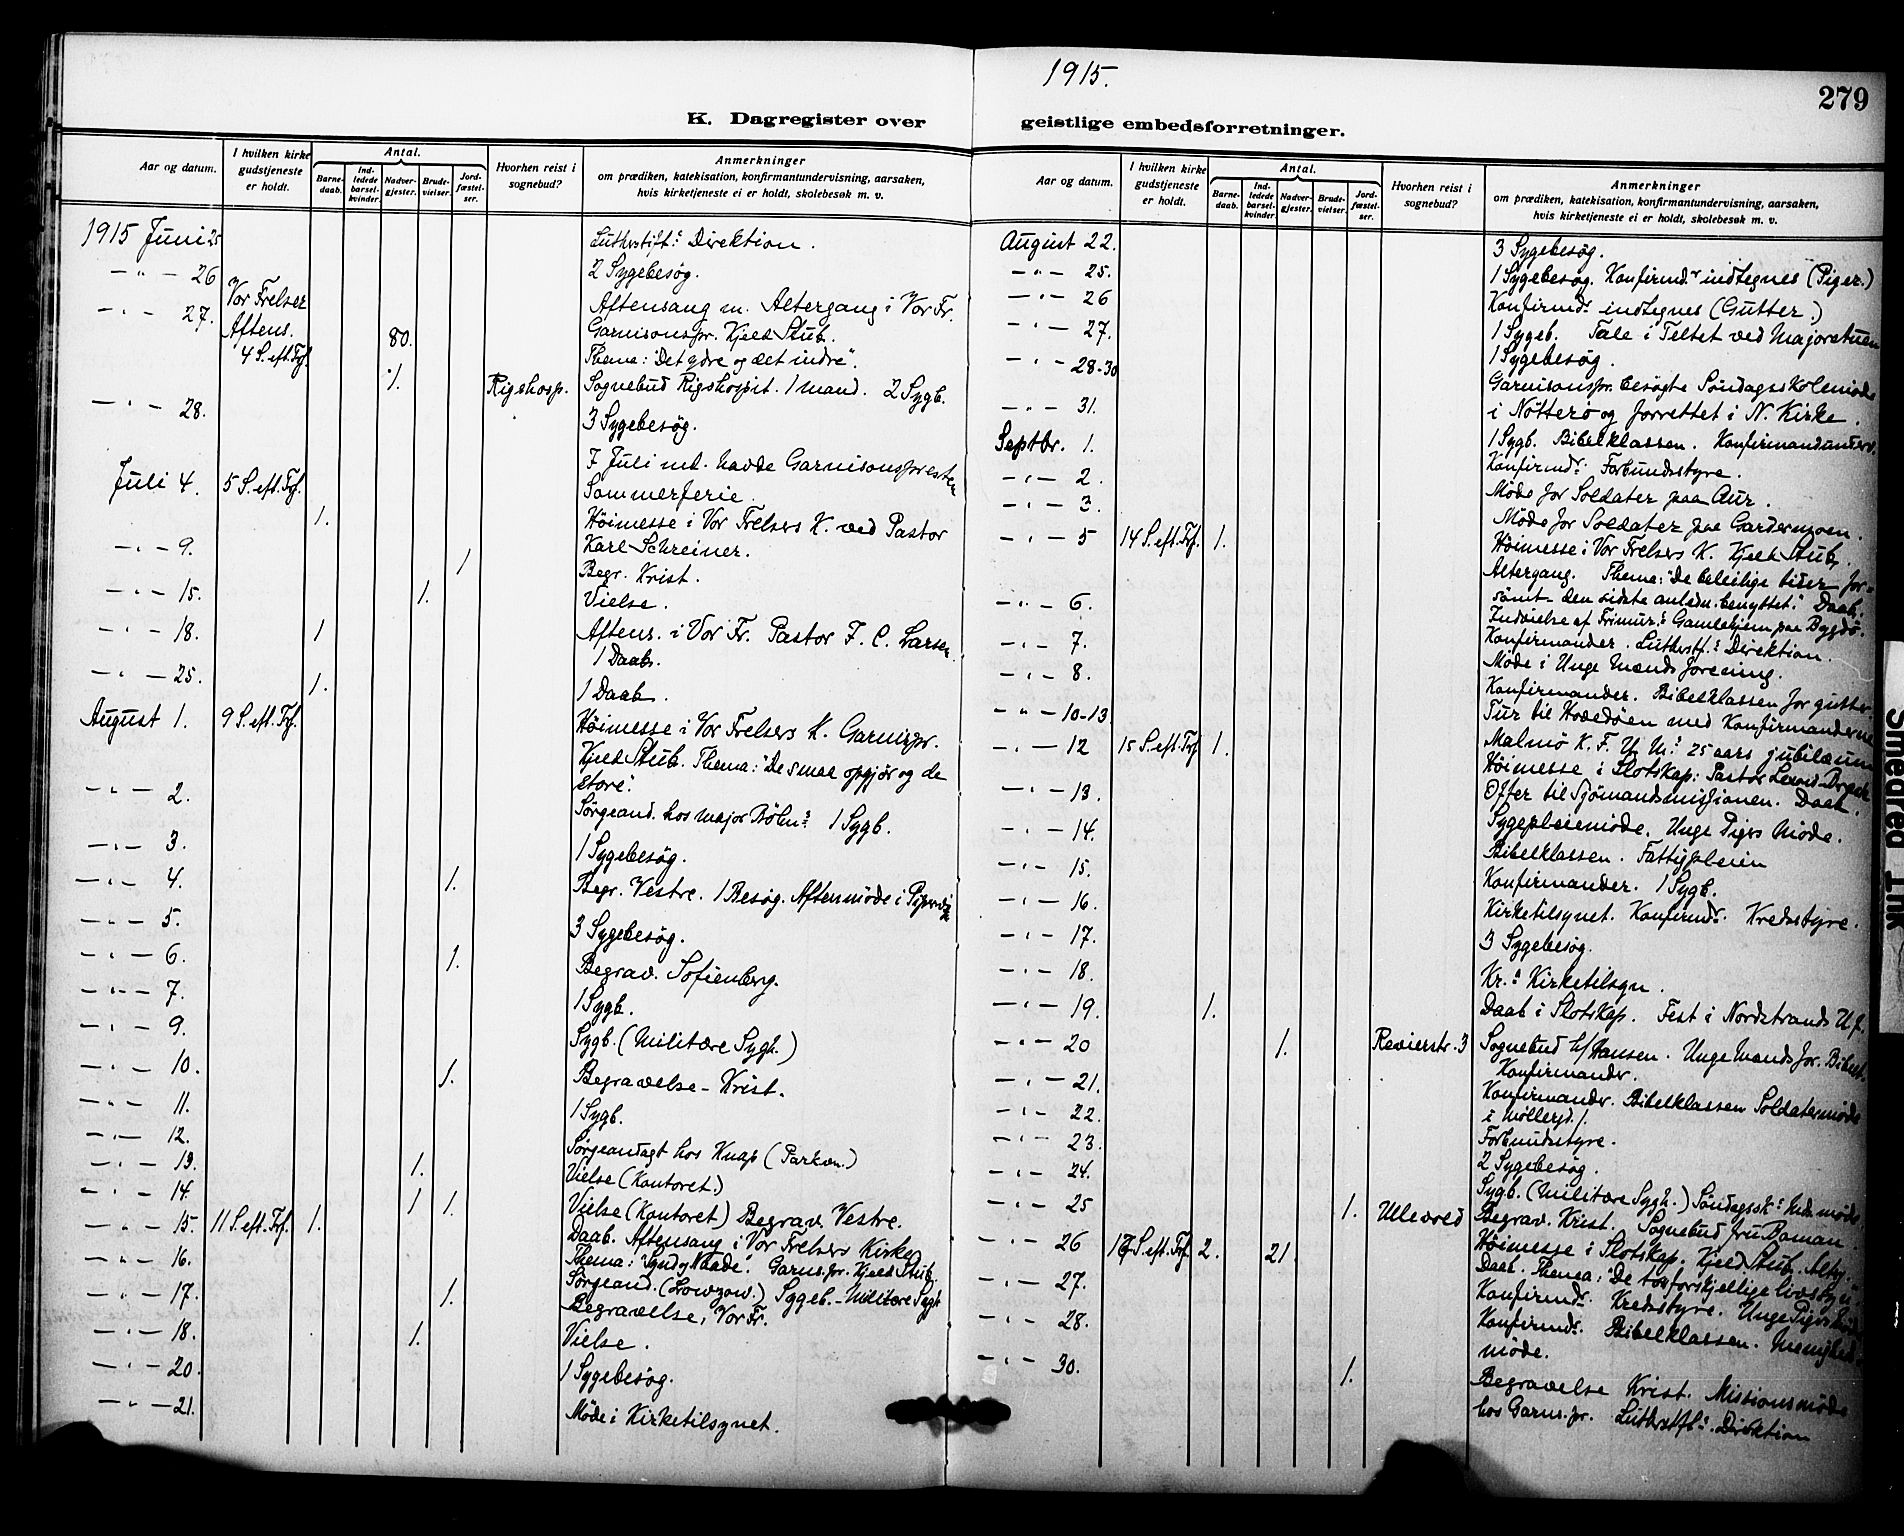 1915.
279
K. Dagregister over geistlige embedsforretninger.
Aar og datum.
I hvilken kirke gudstjeneste er holdt.
Antal.
Barne-daab.
Ind-ledede barsel-kvinder.
Nadver-gjester.
Brude-vielser.
Jord-fæstel-ser.
Hvorhen reist i sognebud?
Anmerkninger
om prædiken, katekisation, konfirmantundervisning, aarsaken,
hvis kirketjeneste ei er holdt, skolebesøk m. v.
1915 Juni 25 Direktion.
— " — 26 2 Sygebesøg.
— " — 27. Vor Frelser Aftens. 4 S. eft. Trf. 80. Aftensang m. Altergang i Vor Fr.
Garnisonspr. Kjeld Stub.
Thema: "Det ydre og det indre".
Rigshosp. Sognebud Rigshospit. 1 mand. 2 Sygb.
— " — 28. 3 Sygebesøg.
7 Juli havde Garnisonspresten
Sommerferie.
Juli 4. 5 S. eft. Trf. 1. Høimesse i Vor Frelsers K. ved Pastor
Karl Schreiner.
— " — 9. 1 Begr. Krist.
— " — 15. 1. Vielse.
— " — 18. 1 Aftens. i Vor Fr. Pastor F. C. Larsen.
1 Daab.
— " — 25. 1. 1 Daab.
August 1. 9 S. eft. Trf. Høimesse i Vor Frelsers K. Garnispr.
Kjeld Stub. Thema: "De smaa opgjør og de
store".
— " — 2. Sørgeand. hos Major 1 Sygb.
— " — 3. 1 Sygebesøg.
— " — 4. 1. Begr. Vestre. 1 Besøg. Aftenmøde i
— " — 5. 3 Sygebesøg.
— " — 6. 1. Begrav. Sofienberg.
— " — 7. 1 Sygb.
— " — 9. Sygb. (Militære Sygh.)
— " — 10. 1. Begravelse - Krist.
— " — 11. 1 Sygb.
— " — 12. Sørgeandagt hos Knap (Parkvn.)
— " — 13. 1. Vielse (Kontoret.)
— " — 14. 1 1. Vielse (Kontoret) Begrav. Vestre.
— " — 15. 11 S. eft. Trf. 1. Daab. Aftensang i Vor Frelsers Kirke
Thema: "Synd og Naade". Garns. pr. Kjeld Stub.
— " — 16. Sørgeand. (Lowzow.) Sygeb. - Militære Sygh
— " — 17. 1. Begravelse, Vor Fr.
— " — 18. 1. Vielse.
— " — 20. 1 Sygebesøg.
— " — 21. Møde i Kirketilsynet.
Aar og datum.
I hvilken kirke gudstjeneste er holdt.
Antal.
Barne-daab.
Ind-ledede barsel-kvinder.
Nadver-gjester.
Brude-vielser.
Jord-fæstel-ser.
Hvorhen reist i sognebud?
Anmerkninger
om prædiken, katekisation, konfirmantundervisning, aarsaken,
hvis kirketjeneste ei er holdt, skolebesøk m. v.
August 22. 3 Sygebesøg.
— " — 25. 1 Sygebesøg. Konfirmdr indtegnes (Piger.)
— " — 26 Konfirmdr indtegnes (Gutter.)
— " — 27. 1 Sygeb. Tale i Teltet ved Majorstuen
1 Sygebesøg.
— " — 28-30 Garnisonspr. besøgte Søndagsskolemøde
i Nøtterø og forrettet i N. Kirke.
— " — 31. 1 Sygb. Bibelklassen. Konfirmandunderv.
Septbr. 1. Konfirmdr. Forbundsstyre.
— " — 2. Møde for Soldater paa Aur.
— " — 3. Møde for Soldater paa Gardermoen.
— " — 5 14 S. eft. Trf. 1. Høimesse i Vor Frelsers K. Kjeld Stub.
Altergang. Thema: "De beleilige tider for-
sømt - den sidste anledn. benyttet." Daab.
— " — 6. Indvielse af Frimur.s Gamlehjem paa Bygdø.
Konfirmander. Direktion.
— " — 7. Møde i Unge Mænds forening.
— " — 8. Konfirmander. Bibelklassen for gutter.
— " — 10-13 Tur til Hovedøen med Konfirmanderne
Malmø K. F. U. M.s 25 aars jubilæum
— " — 12 15 S. eft. Trf. 1. Høimesse i Slotskap: Pastor
Offer til Sjømandsmissionen. Daab.
— " — 13. Sygepleiemøde. Unge Pigers Møde.
— " — 14. Bibelklassen. Fattigpleien
— " — 15. Konfirmander. 1 Sygb.
— " — 16. Kirketilsynet. Konfirmdr. Kredsstyre.
— " — 17. 3 Sygebesøg.
— " — 18. Kr.s Kirketilsyn.
— " — 19. 1. Daab i Slotskap. Fest i Nordstrands U.f.
— " — 20 1. Revierstr. 3 Sognebud Hansen. Unge Mænds for.
— " — 21. Konfirmandr.
— " — 22. Konfirmandr. Bibelklassen Soldatermøde
i Møllergd.
— " — 23. Forbundsstyre.
— " — 24. 2 Sygebesøg.
Sygb. (Militære Sygh.) Søndagssk.s
— " — 25 1. Ullevold Begrav. Krist. Sognebud fru Boman.
— " — 26 17 S. eft. Trf. 2. 21. Høimesse i Slotskap. Kjeld Stub. Altg.
Daab. Thema: "De to forskjellige livssyn".
— " — 27. Konfirmdr. Kredsstyre. Unge Pigers
— " — 28. Konfirmdr. Bibelklassen. Menigheds-
møde.
— " — 30. 1. Begravelse Krist. Missionsmøde
hos Garns. pr. Direktion
Smeared Ink